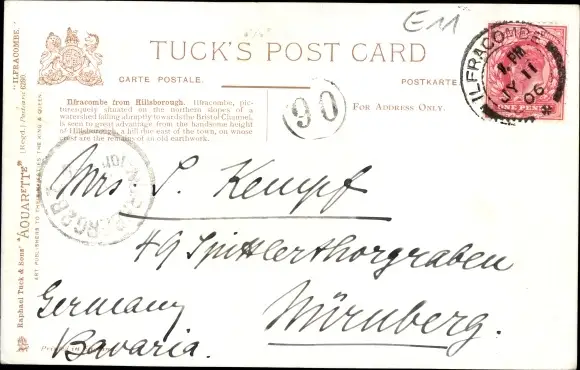 E11
TUCK'S POST CARD
CARTE POSTALE.
POSTKARTE
FOR ADDRESS ONLY.
Ilfracombe from Hillsborough. Ilfracombe, pic-
turesquely situated on the northern slopes of a
watershed falling abruptly towards the Bristol Channel,
is seen to great advantage from the handsome height
of Hillsborough, a hill due east of the town, on whose
crest are the remains of an old earthwork.
90
ILFRACOMBE
PM
MY 11
06
ONE PENNY
Mrs. S. Kempf
49 Spittlerthorgraben
Nürnberg.
Germany
Bavaria.
Raphael Tuck & Sons' "AQUARETTE" (Regd.) Postcard 6290. "ILFRACOMBE."
ART PUBLISHERS TO THEIR MAJESTIES THE KING & QUEEN.